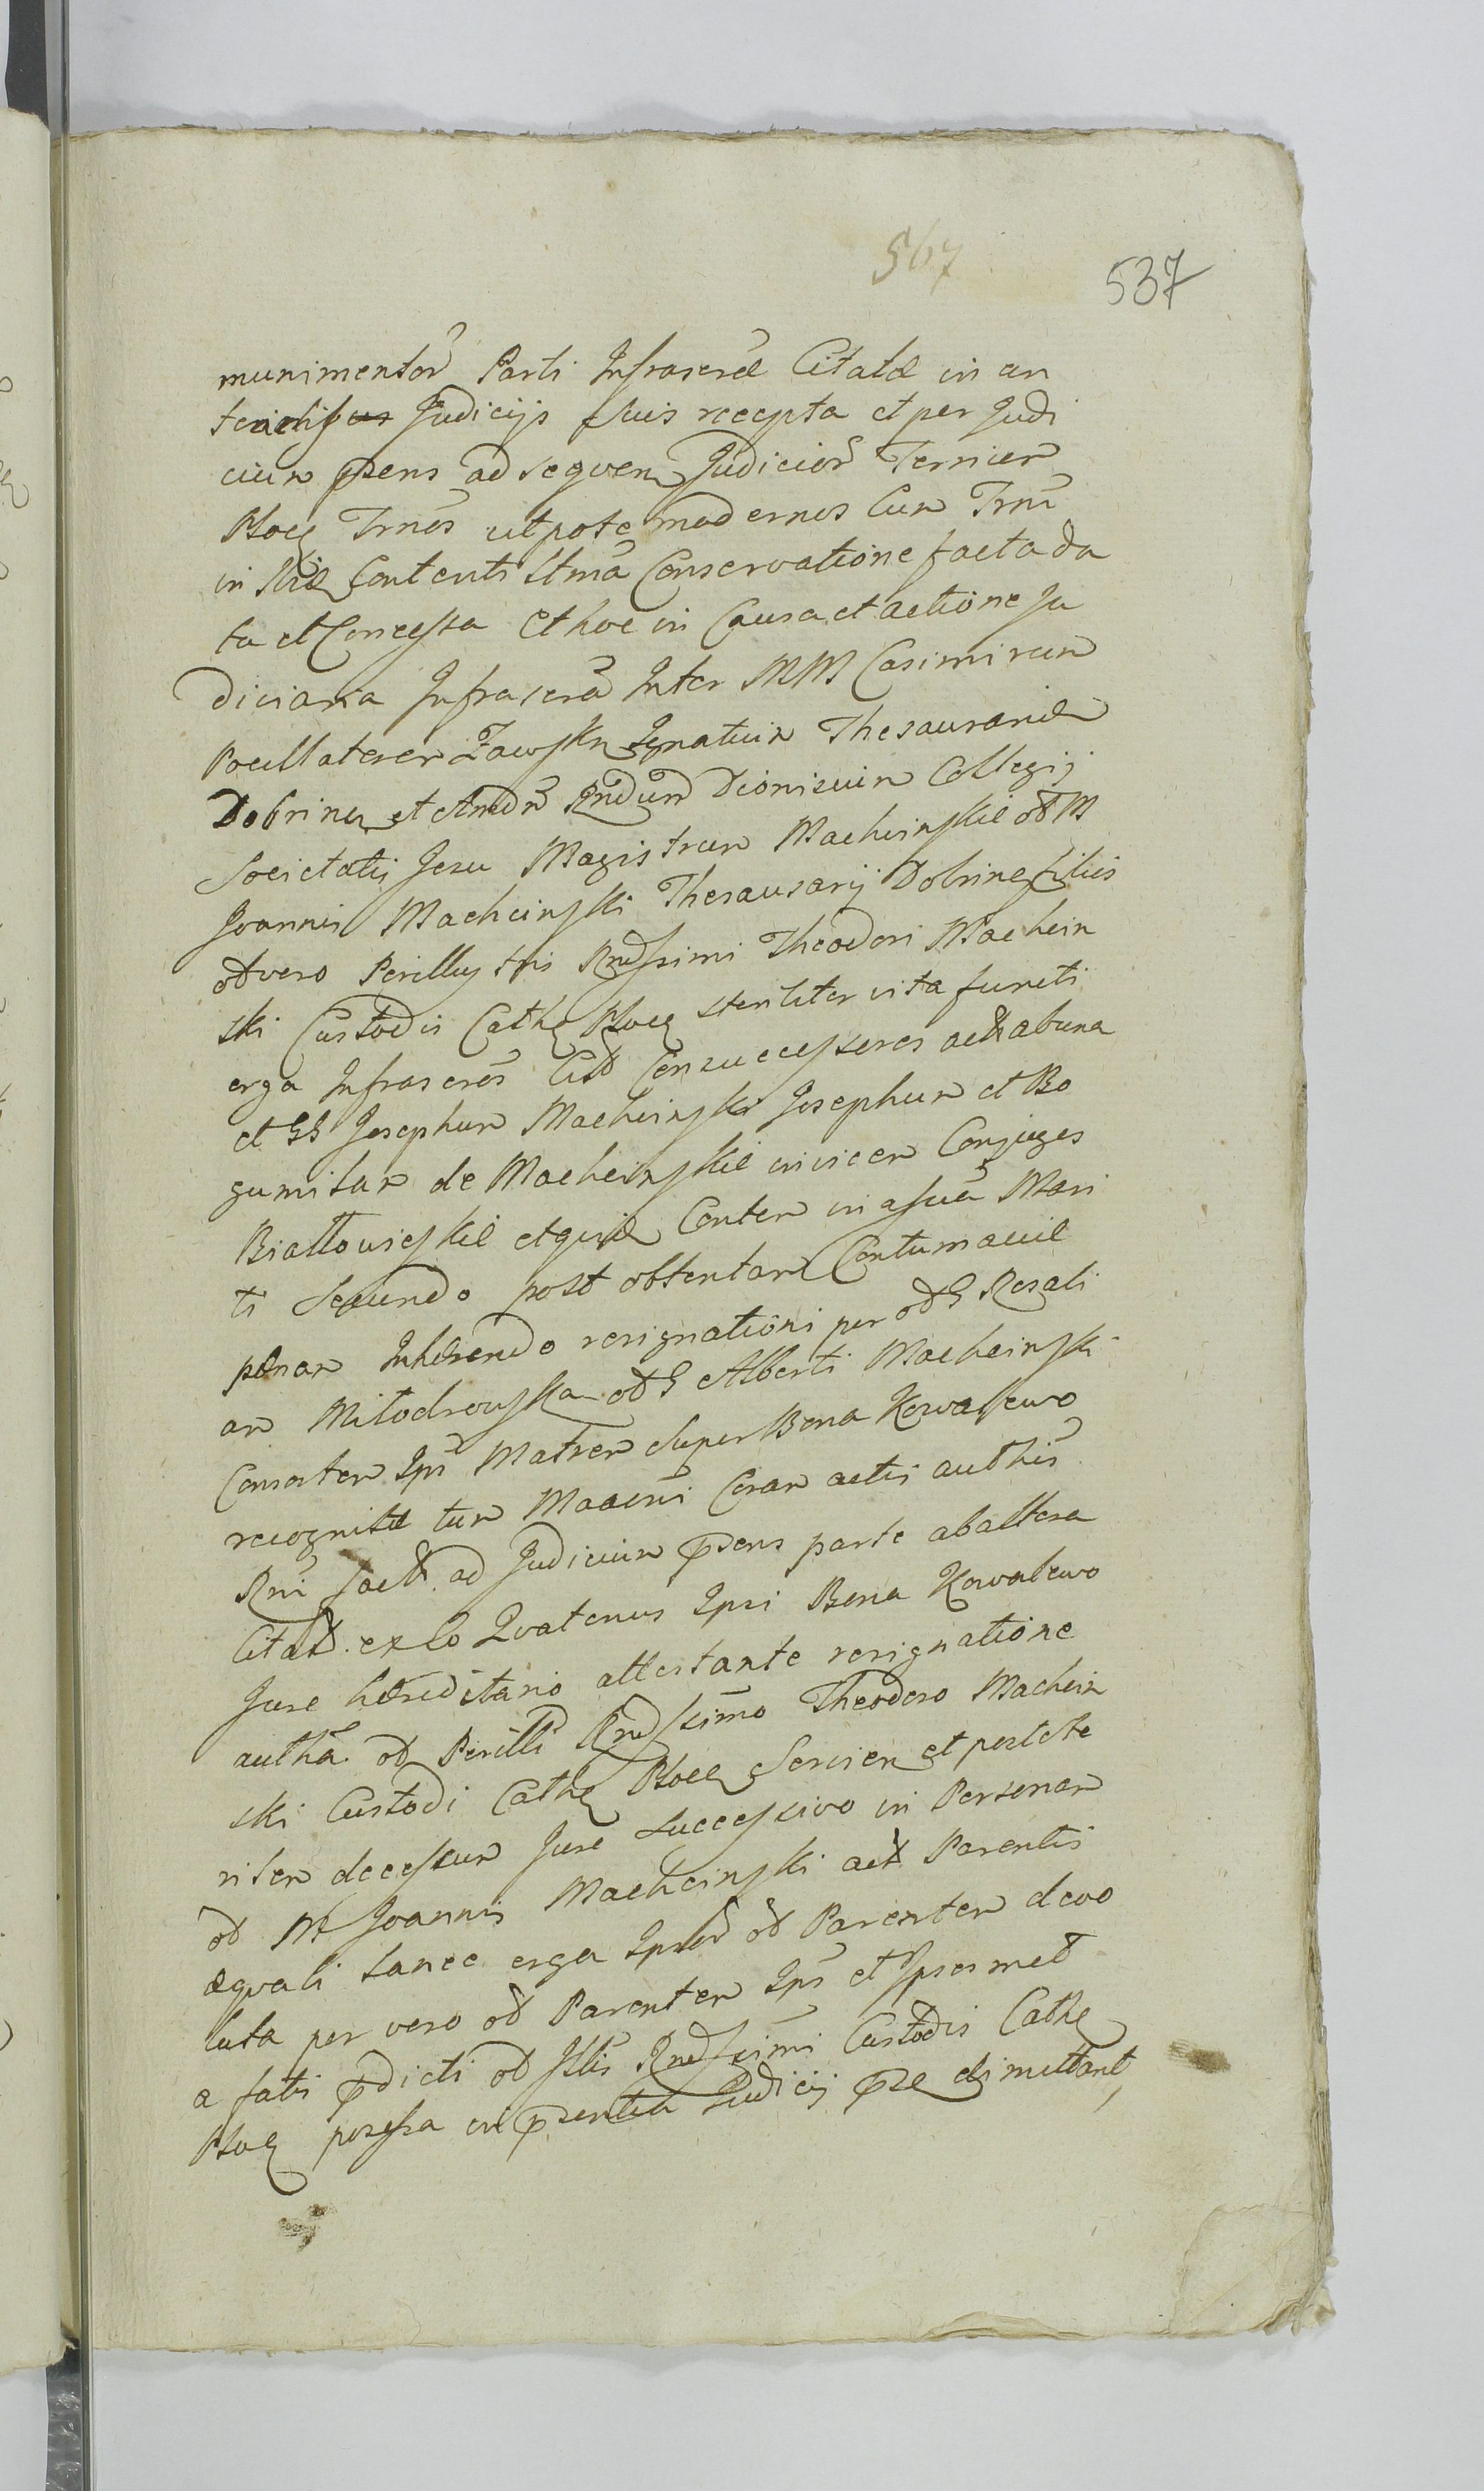 567
537
munimentor Parti Infrascræ Citatæ in an
Judicijs suis recepta et per Judi
cium psens ad sequen Judicior Terrier
Ploc Trnos utpote modernos Cum Trni
in Contenti Itma Conservatione facta da
ta et Concessa Et hoc in Causa et actione Ju
diciaria Infrascra Inter MM Casimirum
Pocillaterem Zawskr Ignatium Thesauraridæ
Dobrinen et Amdn Rndum Dionisium Collegij
Societatis Jesu Magistrum Machcinskie od M
Joannis Machcinski Thesaurarij Dobrinen filios
od vero Perillustris Rndssimi Theodori Machcin
ski Custodis Cathe Ploce steriliter vita functi
erga Infrascros Citd Consuccessores ac ab una
et GG Josephum Machcinski Josephum et Bo
gumilam de Machcinskie invicem Conjuges
Biallowieskie et quidem Conten in assua Mari
ti Secundo post obtentam Contumaciæ
pænam Inhærendo resignationi per od G Rosali
am Mitodrowska od G Alberti Machcinski
Consortem Ips Matrem super Bona Kowalewo
recognitæ tum Coram actis authis
Rni fact. ad Judicium psens parte ab altera
Citatd. ex Eo Quatenus Ipsi Bona Kowalewo
Jure hæreditario attestante resignatione
autha. od Perilli Rndssimo Theodoro Machcin
ski Custodi Cathe Ploce Servien et post
riter decessum Jure Successivo in Personam
od M Joannis Machcinski actd Parentis
æquali lance erga Ipsor od Parentem devo
luta per vero od Parentem Ips et Ipsosmet
a fatis pdicti od Illis Rndssimi Custodis Cathe
Ploce possessa in psentia Judicij pse dimittant,